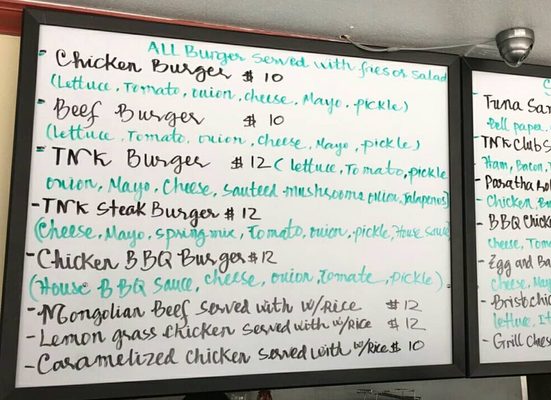 ALL Burger served with fries or salad
- Chicken Burger $ 10
(Lettuce, Tomato, onion, cheese, Mayo, pickle)
- Beef Burger $ 10
(lettuce, Tomato, onion, cheese, Mayo, pickle)
- TNK Burger $12 (lettuce, Tomato, pickle
onion, Mayo, Cheese, sauteed mushrooms onion, Jalapenos)
- TNK Steak Burger $ 12
(Cheese, Mayo, spring mix, Tomato, onion, pickle, House sauce
- Chicken BBQ Burger $12
(House BBQ sauce, cheese, onion, tomate, pickle)
- Mongolian Beef served with w/Rice $ 12
- Lemon grass chicken served with w/Rice $ 12
- Caramelized chicken served with w/Rice $ 10
Tuna
Bell paper,
- TNK Club
Ham, Bacon,
- Paratha
- Chicken
- BBQ
cheese,
- Egg and
cheese,
-
lettuce,
- Grill